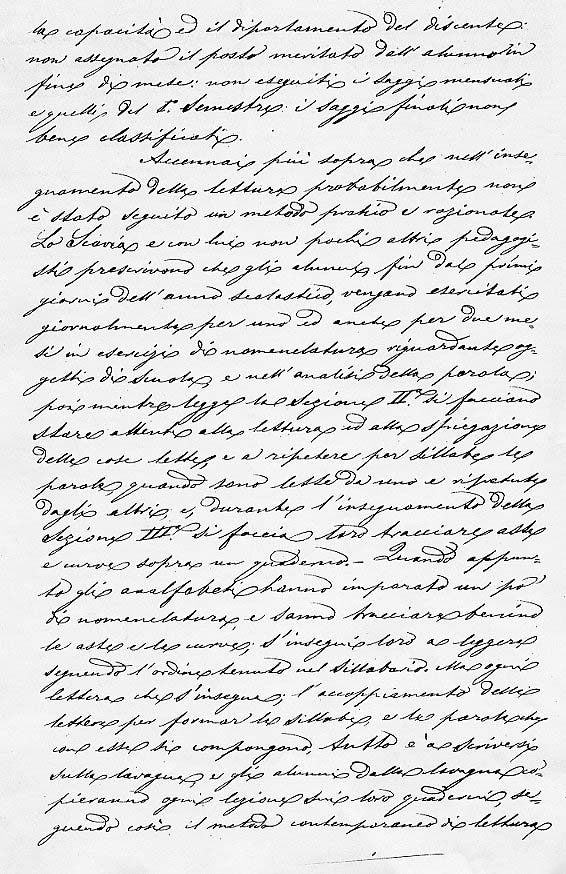 la capacità ed il diportamento del discente:
non assegnato il posto meritato dall'alunno in
fine di mese: non eseguiti i saggi mensuali
e quelli del 1° Semestre: i saggi finali non
bene classificati.
Accennai più sopra che nell'inse-
gnamento della lettura probabilmente non
è stato seguito un metodo pratico e razionale.
Lo Scavia e con lui non pochi altri pedagogi-
sti prescrivono che gli alunni fin dai primi
giorni dell'anno scolastico, vengano esercitati
giornalmente per uno ed anche per due me-
si in esercizi di nomenclatura riguardante og-
getti di scuola, e nell'analisi della parola;
poi mentre legge la Sezione II.ª si facciano
stare attenti alla lettura ed alla spiegazione
delle cose lette, e a ripetere per sillabe le
parole quando sono lette da uno e ripetute
dagli altri, e, durante l'insegnamento della
Sezione III.ª si faccia loro tracciare aste
e curve sopra un quaderno. - Quando appun-
to gli analfabeti hanno imparato un po'
di nomenclatura, e sanno tracciare benino
le aste e le curve, s'insegni loro a leggere
seguendo l'ordine tenuto nel Sillabario. Ma ogni
lettera che s'insegna; l'accoppiamento delle
lettere per formar le sillabe, e le parole che
con esse si compongono, tutto è a scriversi
sulla lavagna, e gli alunni dalla lavagna co-
pieranno ogni lezione sui loro quaderni, se-
guendo così il metodo contemporaneo di lettura